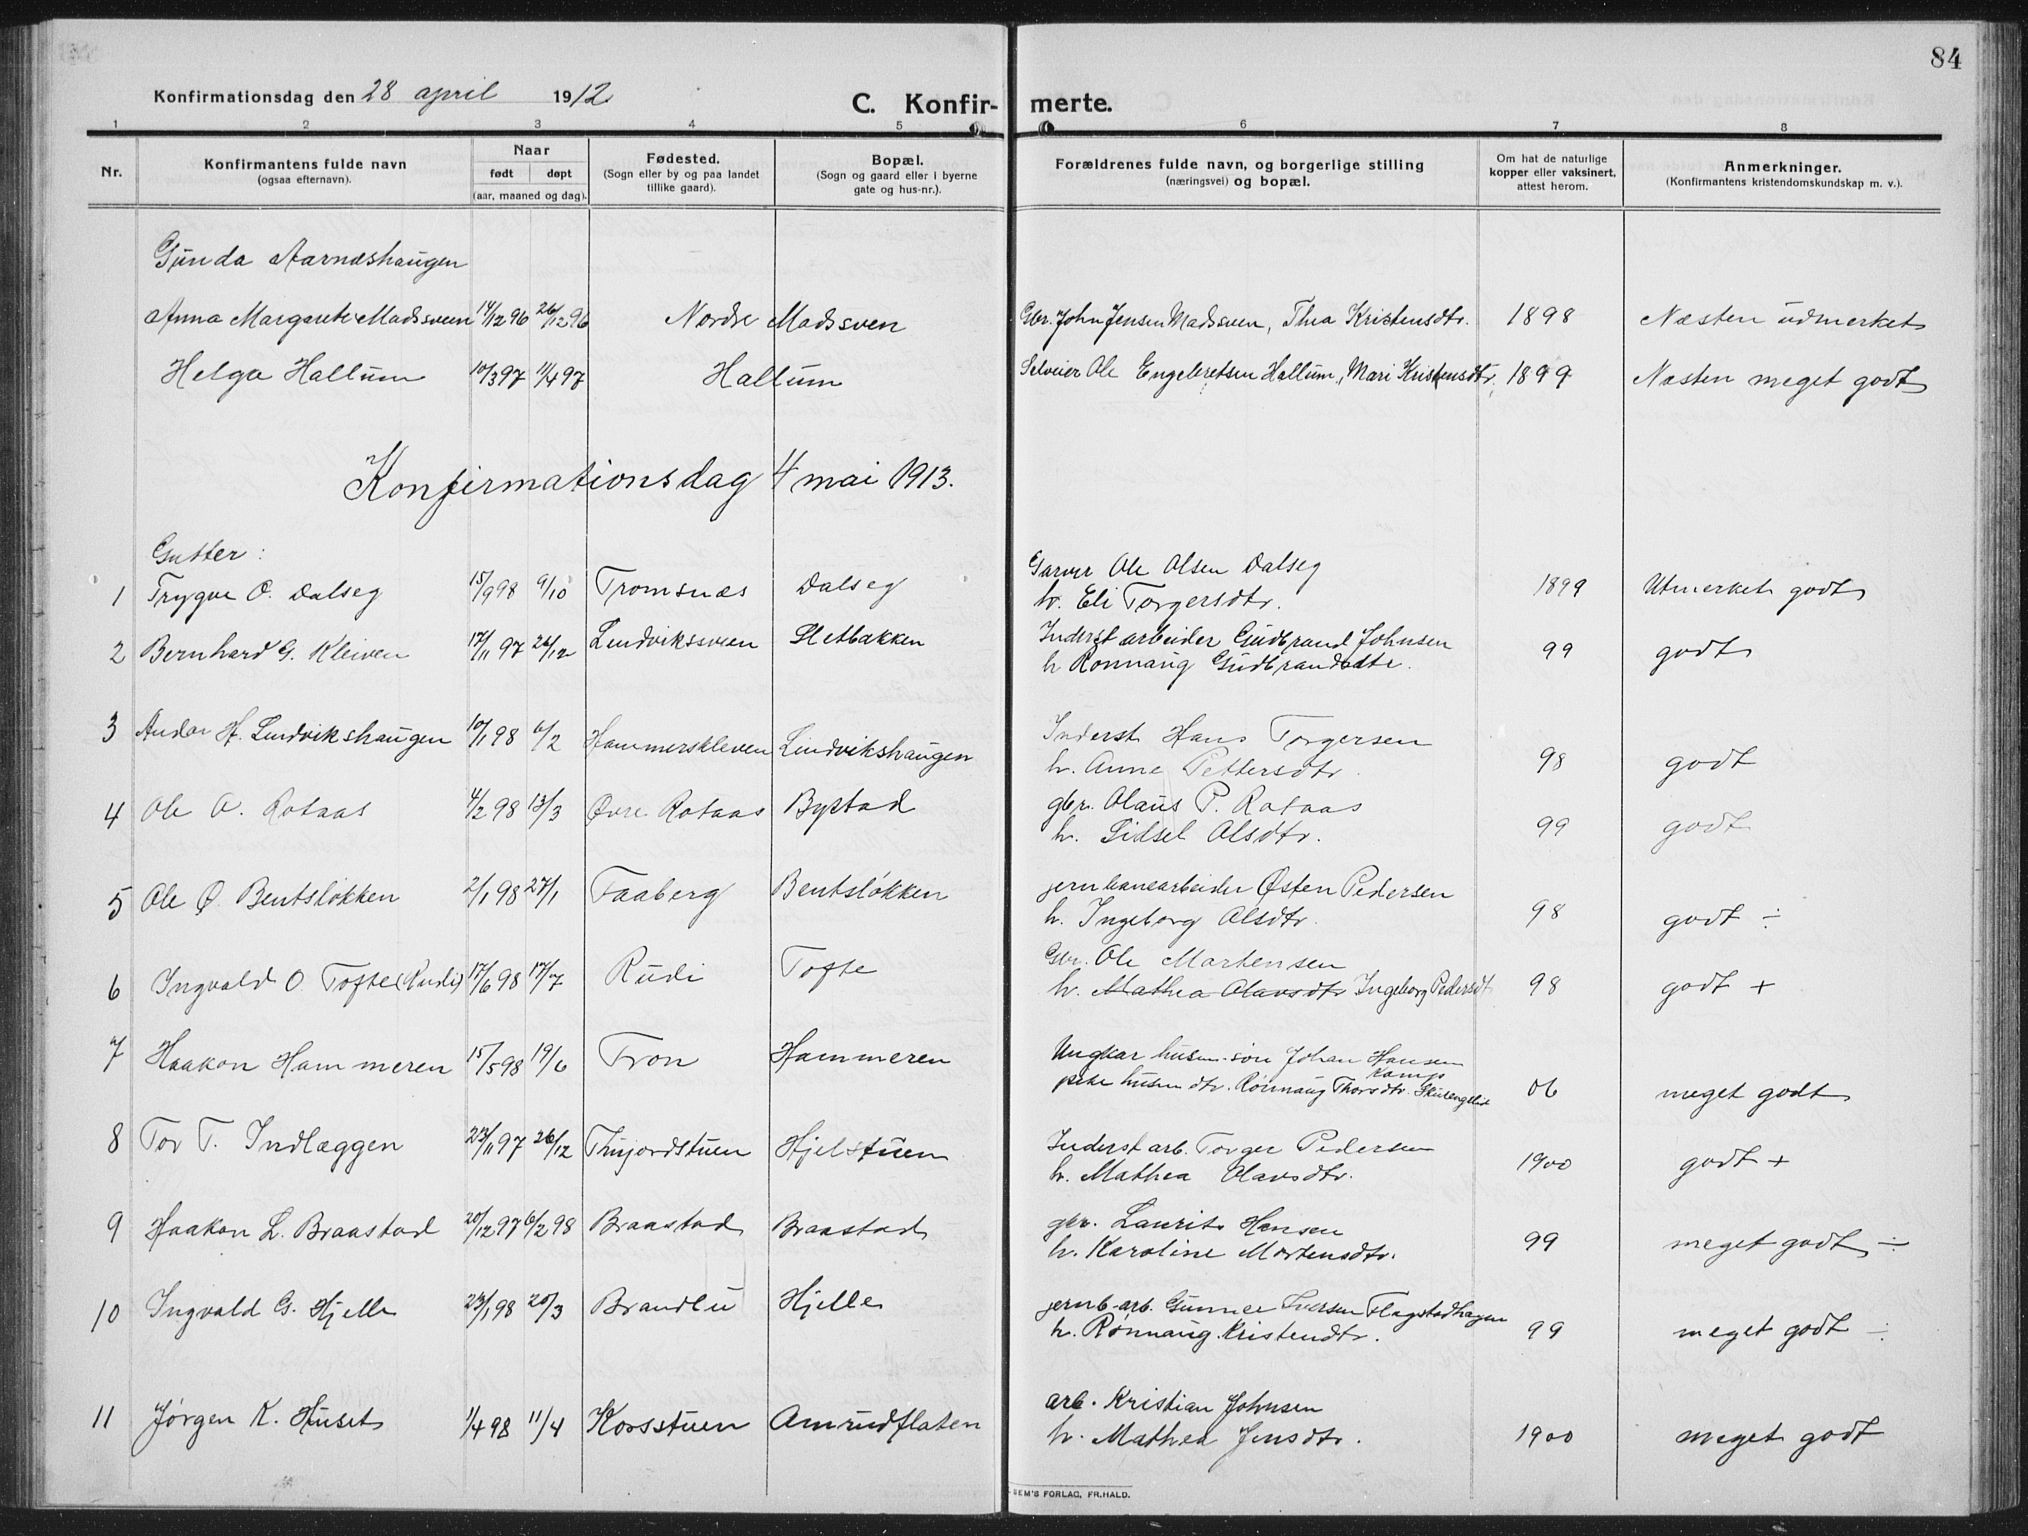 84
Konfirmationsdag den 28 april 1912
C. Konfir- merte.
1 2 3 4 5 6 7 8
Nr.
Konfirmantens fulde navn
(ogsaa efternavn).
Naar
født døpt
(aar, maaned og dag).
Fødested.
(Sogn eller by og paa landet
tillike gaard).
Bopæl.
(Sogn og gaard eller i byerne
gate og hus-nr.).
Forældrenes fulde navn, og borgerlige stilling
(næringsvei) og bopæl.
Om hat de naturlige
kopper eller vaksinert,
attest herom.
Anmerkninger.
(Konfirmantens kristendomskundskap m. v.).
Gunda Aarnæshaugen
Anna Margarete Madssveen 14/12 96 26/12 96 Nordre Madssven Gbr. John Jensen Madssveen, Thea Kristensdtr. 1898 Næsten udmerket
Helga Hallum 10/3 97 11/4 97 Hallum Selveier Ole Engebretsen Hallum, Mari Kristensdtr. 1899 Næsten meget godt
Konfirmationsdag 4 mai 1913.
Gutter:
1 Trygve O. Dalseg 15/9 98 9/10 Tromsnæs Dalseg Garver Ole Olsen Dalseg
h. Eli Torgersdtr. 1899 Utmerket godt
2 Bernhard G. Kleiven 17/11 97 26/12 Lundvikssveen Sletbakken Inderst arbeider Gudbrand Johnsen
h Rønnaug Gudbrandsdtr. 99 godt
3 Andor H. Lundvikshaugen 10/1 98 6/2 Hammerskleven Lundvikshaugen Inderst Hans Torgersen
h. Anne Pettersdtr. 98 godt
4 Ole O. Rotaas 4/2 98 13/3 Øvre Rotaas Bystad gbr. Olaus P. Rotaas
h. Sidsel Olsdtr. 99 godt
5 Ole Ø. Bentsløkken 2/1 98 27/1 Faaberg Bentsløkken jernbanearbeider Østen Pedersen
h. Ingeborg Olsdtr. 98 godt ÷
6 Ingvald O. Tofte (Rudi) 17/6 98 17/7 Rudi Tofte Gbr. Ole Mortensen
h. Mathea Olavsdtr Ingeborg Pedersdt 98 godt +
7 Haakon Hammeren 15/5 98 19/6 Fron Hammeren Ungkar husm. søn Johan Hansen Kamp
pike husm dtr. Rønnaug Thorsdtr. 06 meget godt
8 Tor T. Indlæggen 23/11 97 26/12 Hjelstuen Inderst arb. Torger Pedersen
h. Mathea Olavsdtr. 1900 godt +
9 Haakon L. Braastad 20/12 97 6/2 98 Braastad Braastad gbr. Laurits Hansen
h. Karoline Mortensdtr. 99 meget godt ÷
10 Ingvald G. Hjelle 23/1 98 20/3 Brandbu Hjelle jernb-arb. Gunner Iversen Flagstadhagen
h. Rønnaug Kristendtr. 99 meget godt ÷
11 Jørgen K. Huset 1/4 98 11/4 Korsstuen Amrudflaten arb. Kristian Johnsen
h. Mathea Jensdtr. 1900 meget godt
SEM'S FORLAG, FR.HALD.